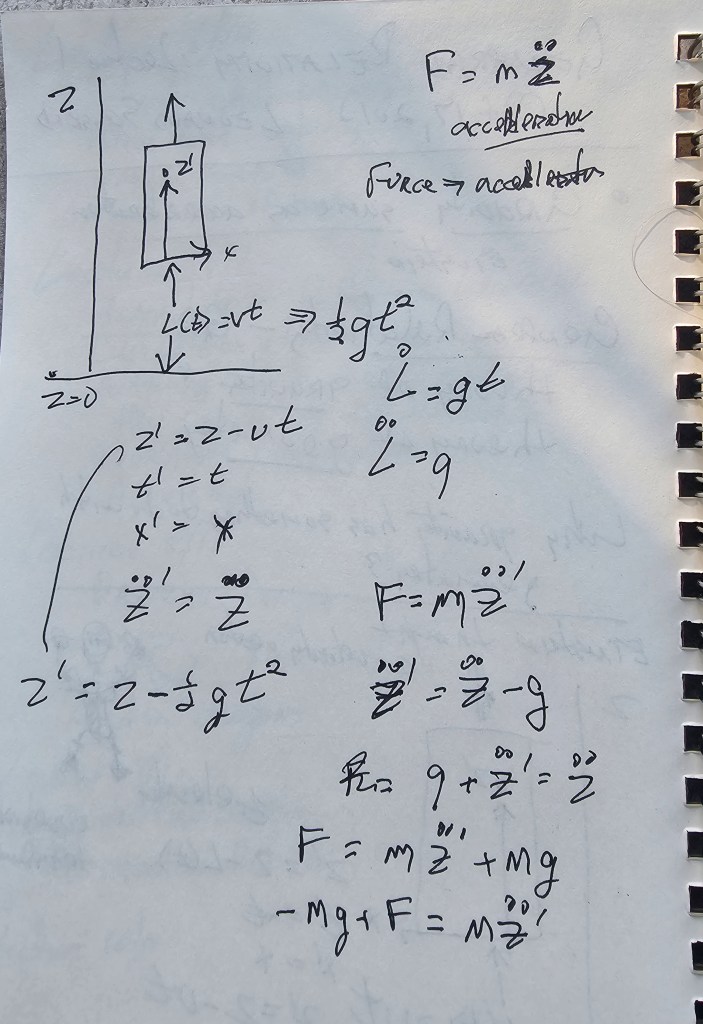 F = m z̈
acceleration
Force ⇒ acceleration
Z
z'
x
L(t) = vt ⇒ ½gt²
z=0
L̇ = gt
L̈ = g
z' = z - vt
t' = t
x' = x
z̈' = z̈
F = m z̈'
z' = z - ½ g t²
z̈' = z̈ - g
g + z̈' = z̈
F = m z̈' + mg
-mg + F = m z̈'